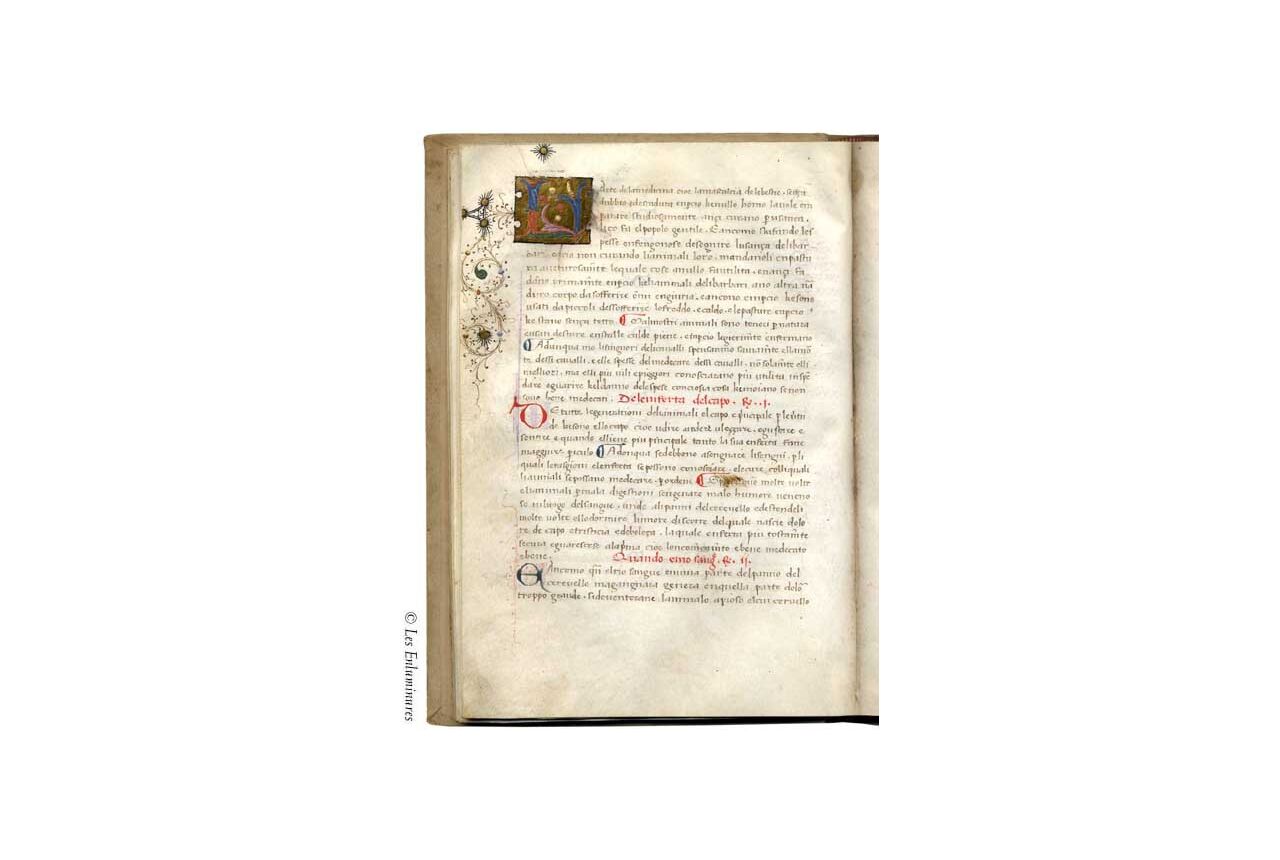 Arte dela medicina cioe lamascalcia dele bestie. sença
dubbio e perduta empcio ke nullo homo la vole em
parare studiosamente. ançi curano p usança.
si co fa el popolo gentile. E ancome sia fando les
pesse onfengonose deseguire lusança deli bar
bari. empcio non curando lianimali loro. mandanoli en pastu
ra aventurosamte. lequale cose anullo fa utilita. enançi fa
dano. primamte empcio ke li animali deli barbari ano altra na
duro corpo da sofferire omni engiuria. e ancono empcio ke sono
usati da piccoli de sofferire lo freddo. e caldo. e le pasture empcio
ke stano sença tetto. Mali nostri animali sono teneri p natura
e usati de stare en stalle calde piene. e impcio legierimte enfermano
Adunqua mo li signori deli cavalli pensanno saviamte ella mor
te dessi cavalli. e elle spesse del medecare dessi cavalli. no solamte elli
melliori. ma elli piu vili e piggiori conosceranno piu utilita inspe
dare o guarire kel danno dele spese conciosia cosa ke moiano se non
sono bene medecati. Dele inferta del capo. R. .I.
De tutte le generationi deli animali el capo e principale p lenti
de besono ello capo cioe udire vedere uleggare. e gustare e
sentire e quando elliene piu principale tanto la sua enferta fane
maggiure piculo Adonqua se debbono asengnare li sengni. p li
quali le rasgioni e le enferta se possono conosciare. e le cure. colli quali
li animali se possano medecare. p ordene molte volte
e li animali p mala digestioni sengenare malo humore veneno
so in luogo del sangue. unde ali panni del cerevello e destendeli
molte volte ello dormire. humore discorre delquale nascie dolo
re de capo. e tristicia e debeleça. laquale enferta piu tostamte
se cura e guarescese ala prima cioe lo ncomençamto ebene medecato
ebene. Quando emo sang. R. .II.
E Ancomo qn elrio sangue en una parte delpanno del
cerevello magangnata genera en quella parte dolor
troppo grande. si deventerane lanimalo apioso el cui cervello
© Les Enluminures